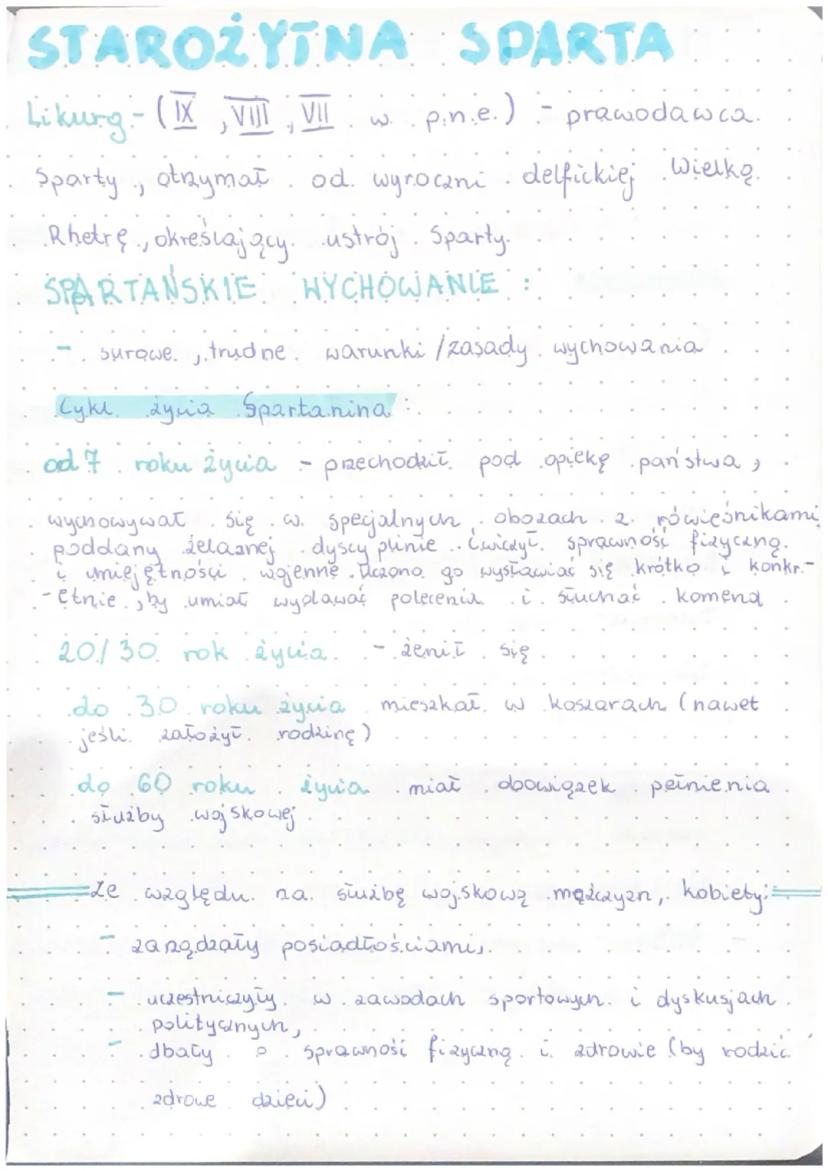 STAROŻYTNA SPARTA
Likurg - (IX, VIII, VII w. p.n.e.) - prawodawca
Sparty, otrzymał od wyroczni delfickiej Wielką
Rhetrę, określający ustrój Sparty.
SPARTAŃSKIE WYCHOWANIE :
- surowe, trudne warunki / zasady wychowania
Cykl życia Spartanina :
od 7 roku życia - przechodził pod opiekę państwa,
wychowywał się w specjalnych obozach z rówieśnikami
poddany żelaznej dyscyplinie. Ćwiczył sprawność fizyczną
i umiejętności wojenne. Uczono go wysławiać się krótko i konkr-
-etnie, by umiał wydawać polecenia i słuchać komend
20/30 rok życia - żenił się
do 30 roku życia mieszkał w koszarach (nawet
jeśli założył rodzinę)
do 60 roku życia miał obowiązek pełnienia
służby wojskowej
Ze względu na służbę wojskową mężczyzn, kobiety:
- zarządzały posiadłościami,
- uczestniczyły w zawodach sportowych i dyskusjach
politycznych,
- dbały o sprawność fizyczną i zdrowie (by rodzić
zdrowe dzieci)